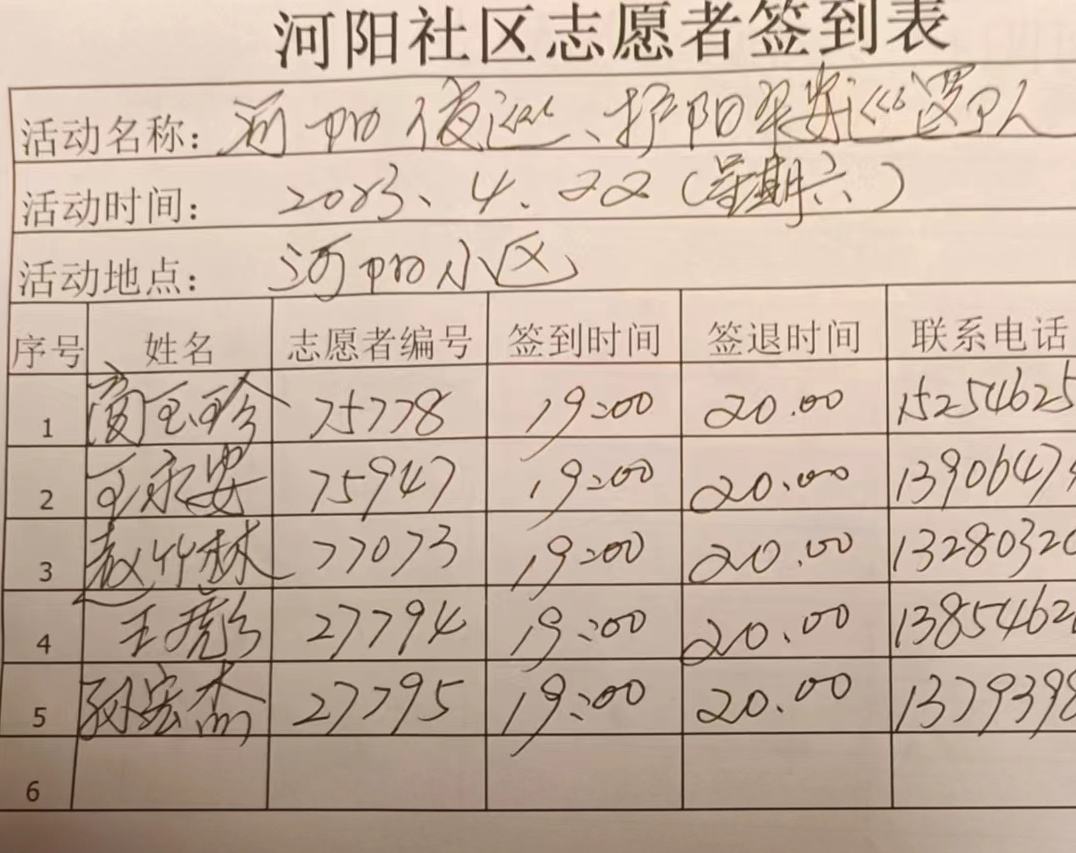 河阳社区志愿者签到表
活动名称：河阳夜巡、护阳平安巡逻队
活动时间：2023、4、22（星期六）
活动地点：河阳小区
序号 姓名 志愿者编号 签到时间 签退时间 联系电话
1 75778 19:00 20:00 15254625
2 王永安 75947 19:00 20:00 1390647
3 赵竹林 77073 19:00 20:00 1328032
4 王彪 27794 19:00 20:00 1385462
5 孙宏杰 27795 19:00 20:00 1379398
6